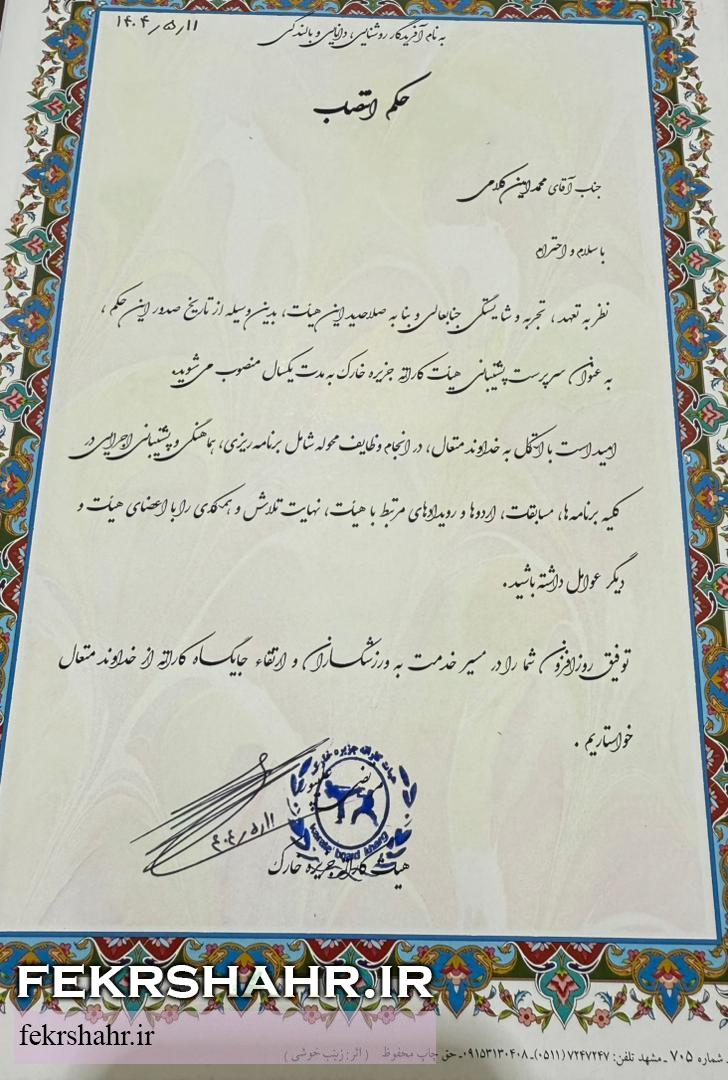 ۱۴۰۴/۵/۱۱
به نام آفریدگار روشنایی، دانایی و بالندگی
حکم انتصاب
جناب آقای محمد امین کلامی
با سلام و احترام
نظر به تعهد، تجربه و شایستگی جنابعالی و بنا به صلاحدید این هیئت، بدین وسیله از تاریخ صدور این حکم،
به عنوان سرپرست پشتیبانی هیئت کاراته جزیره خارک به مدت یکسال منصوب می شوید.
امید است با اتکال به خداوند متعال، در انجام وظایف محوله شامل برنامه ریزی، هماهنگی و پشتیبانی اجرایی در
کلیه برنامه ها، مسابقات، اردوها و رویدادهای مرتبط با هیئت، نهایت تلاش و همکاری را با اعضای هیئت و
دیگر عوامل داشته باشید.
توفیق روزافزون شما را در مسیر خدمت به ورزشکاران و ارتقاء جایگاه کاراته از خداوند متعال
خواستاریم.
هیات کاراته جزیره خارک
karate board kharg
۴۰۴/۵/۱۱
هیئت کاراته جزیره خارک
FEKRSHAHR.IR
fekrshahr.ir
شماره ۷۰۵ ـ مشهد تلفن: ۷۲۴۷۲۴۷ (۰۵۱۱)ـ ۰۹۱۵۳۱۳۰۴۰۸ـ حق چاپ محفوظ (اثر: زینب خوشی)